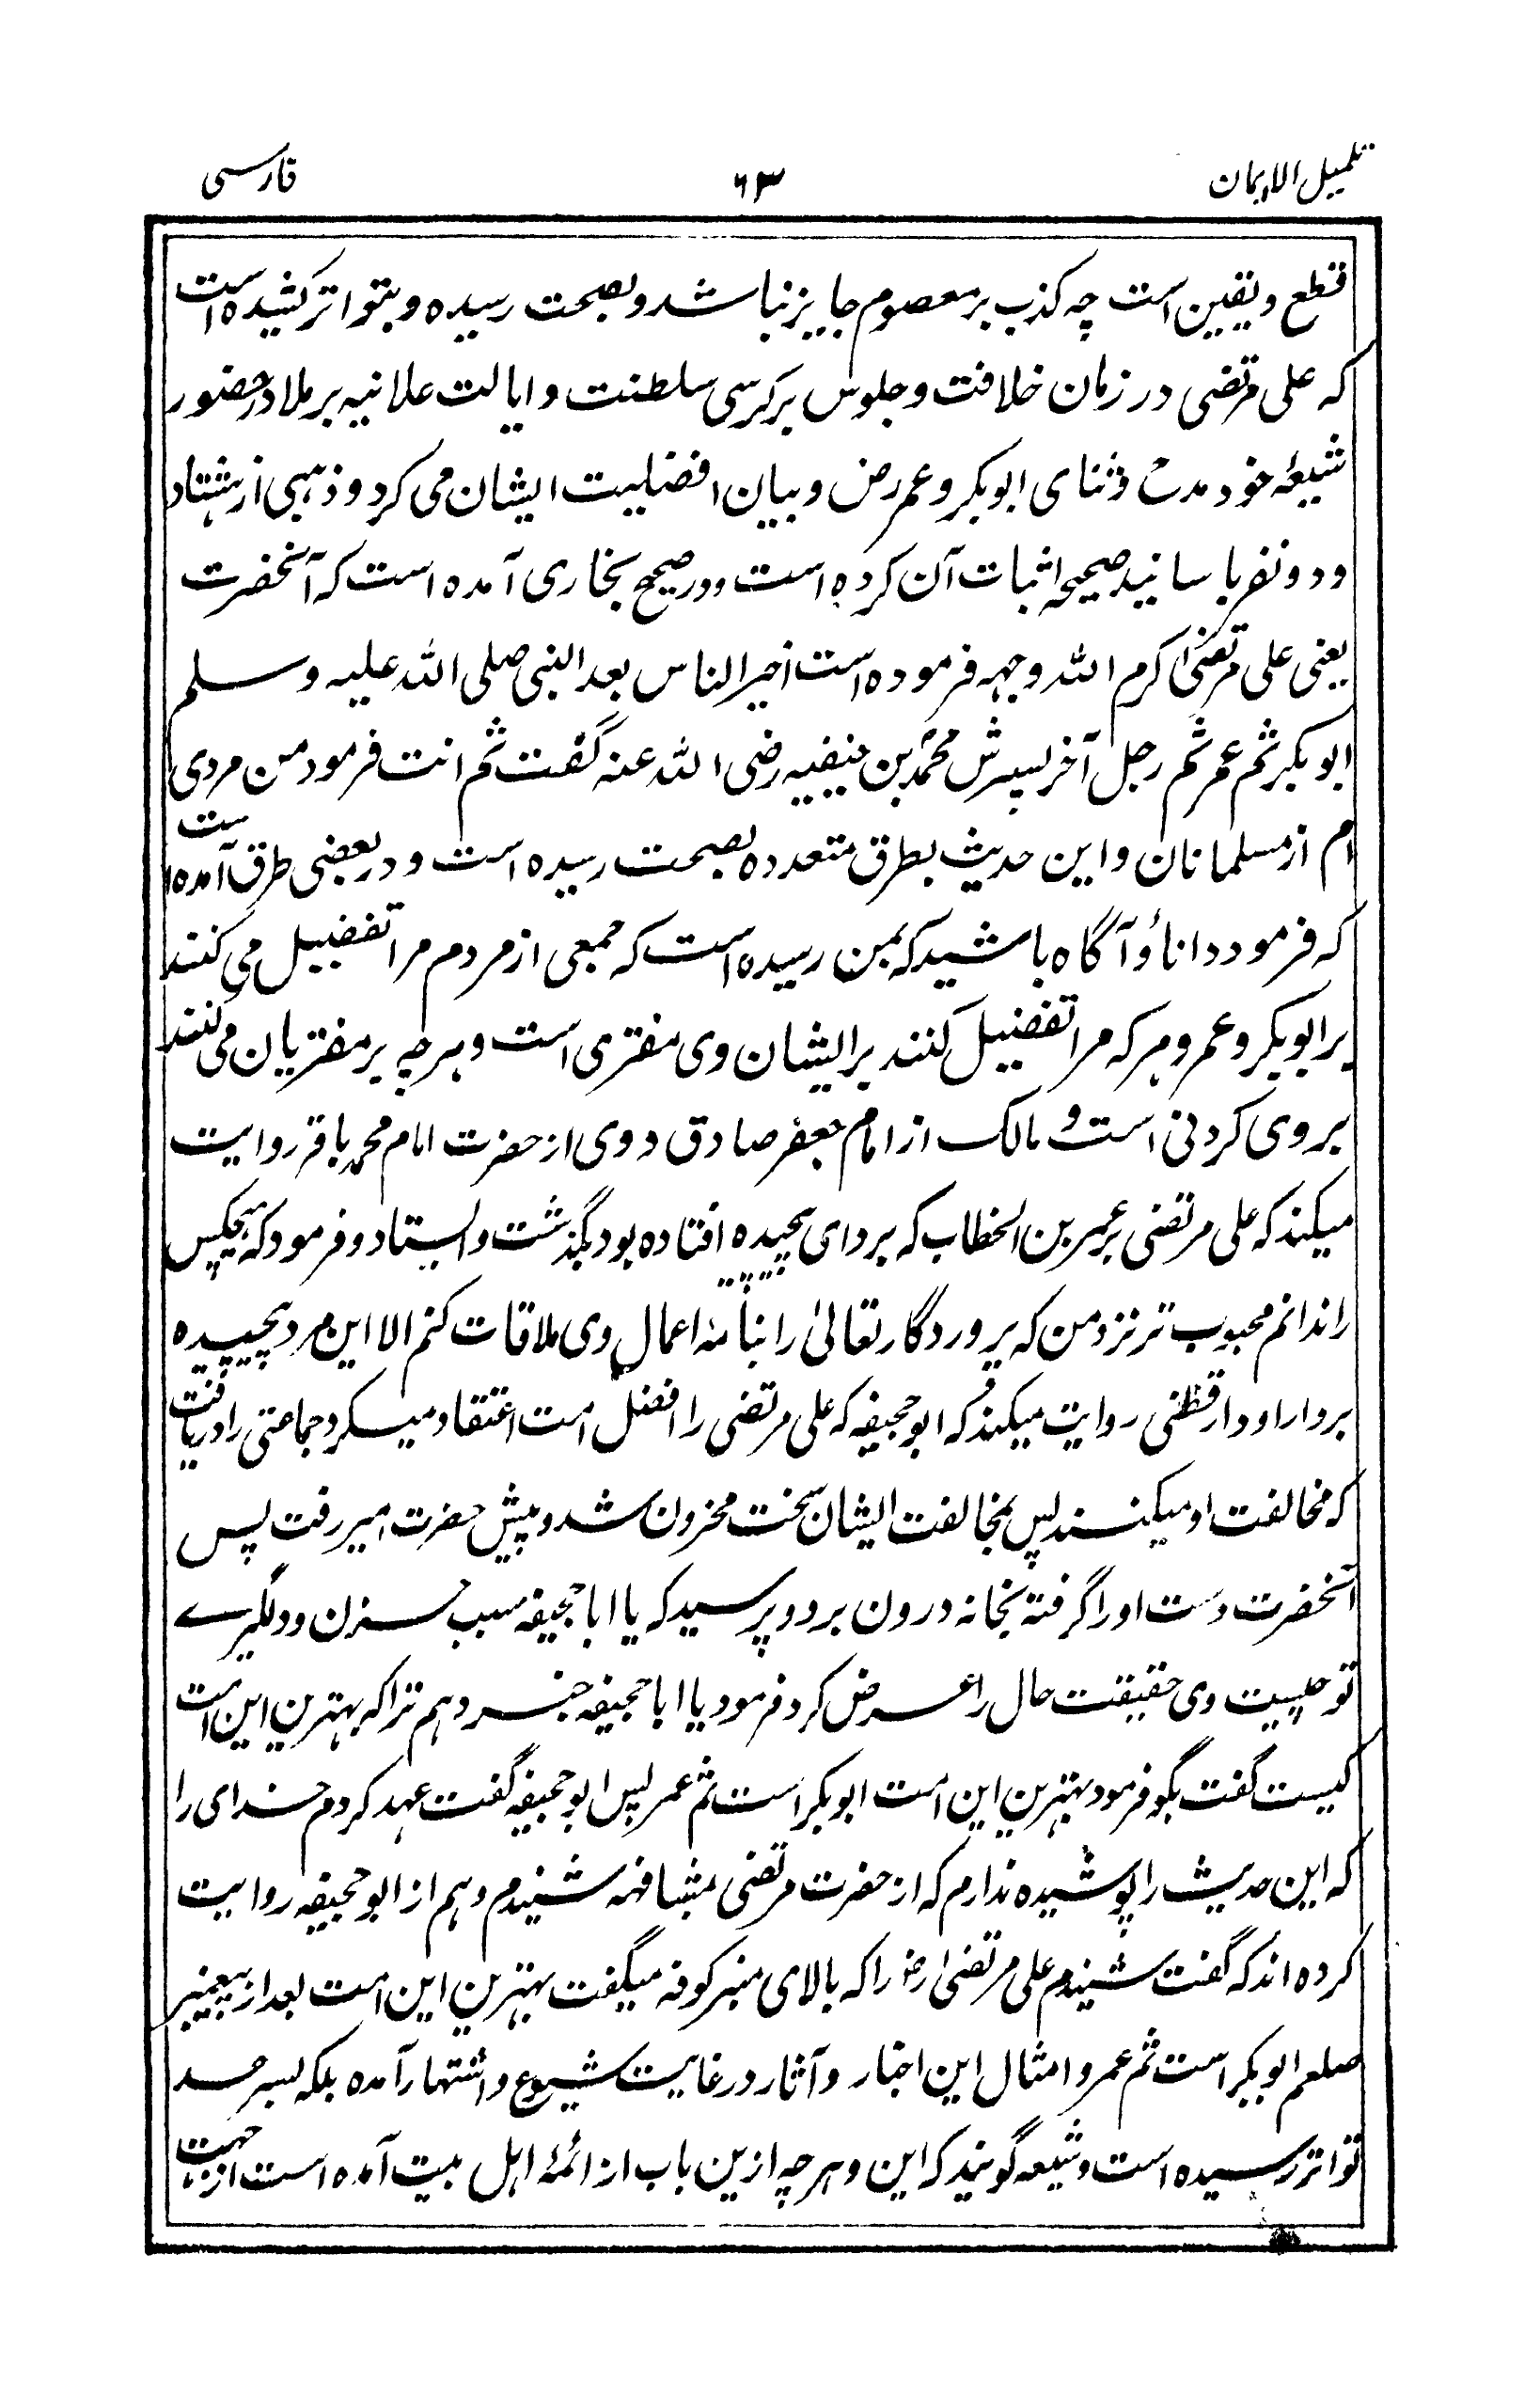 تکمیل الایمان ۶۳ فارسی
قطع و یقین است چه کذب بر معصوم جایز نباشد و بصحت رسیده و بتواتر کشیده است
که علی مرتضی در زمان خلافت و جلوس بر کرسی سلطنت و ایالت علانیه بر ملا در حضور
شیعۀ خود مدح و ثنای ابوبکر و عمر رض و بیان افضلیت ایشان می کرد و ذهبی از هشتاد
و دو نفر باسانید صحیحه اثبات آن کرده است و در صحیح بخاری آمده است که آنحضرت
یعنی علی مرتضیٰ کرم الله وجهه فرموده است اخیر الناس بعد النبی صلی الله علیه و سلم
ابوبکر ثم عمر ثم رجل آخر پسرش محمد بن حنیفیه رضی الله عنه گفت ثم انت فرمود من مردی
ام از مسلمانان و این حدیث بطرق متعدده بصحت رسیده است و در بعضی طرق آمده است
که فرمود دانا و آگاه باشید که بمن رسیده است که جمعی از مردم مرا تفضیل می کنند
بر ابوبکر و عمر و هر که مرا تفضیل کنند بر ایشان وی مفتری است و هر چه بر مفتریان می کنند
بر وی کردنی است و مالک از امام جعفر صادق و وی از حضرت امام محمد باقر روایت
میکند که علی مرتضی بر عمر بن الخطاب که بردای پیچیده افتاده بود بگذشت و ایستاد و فرمود که هیچکس
را ندانم محبوب تر نزد من که پروردگار تعالیٰ را بنامۀ اعمال وی ملاقات کنم الا این مرد پیچیده
بردا را و دارقطنی روایت میکند که ابو جحیفه که علی مرتضی را افضل امت اعتقاد میکرد جماعتی را دریافت
که مخالفت او میکنند پس بمخالفت ایشان سخت محزون شد و پیش حضرت امیر رفت پس
آنحضرت دست او را گرفته بخانه درون برد و پرسید که یا ابا جحیفه سبب حزن و دلگیرے
تو چیست وی حقیقت حال را عرض کرد فرمود یا ابا جحیفه خبر دهم ترا که بهترین این امت
کیست گفت بگو فرمود بهترین این امت ابوبکر است ثم عمر پس ابو جحیفه گفت عهد کردم خدای را
که این حدیث را پوشیده ندارم که از حضرت مرتضی بمشافهه شنیدم و هم از ابو جحیفه روایت
کرده اند که گفت شنیدم علی مرتضیٰ رض را که بالای منبر کوفه میگفت بهترین این امت بعد از پیغمبر
صلعم ابوبکر است ثم عمر و امثال این اخبار و آثار در غایت شیوع و اشتهار آمده بلکه بسرحد
تواتر رسیده است و شیعه گویند که این و هر چه ازین باب از ائمۀ اهل بیت آمده است از جهت